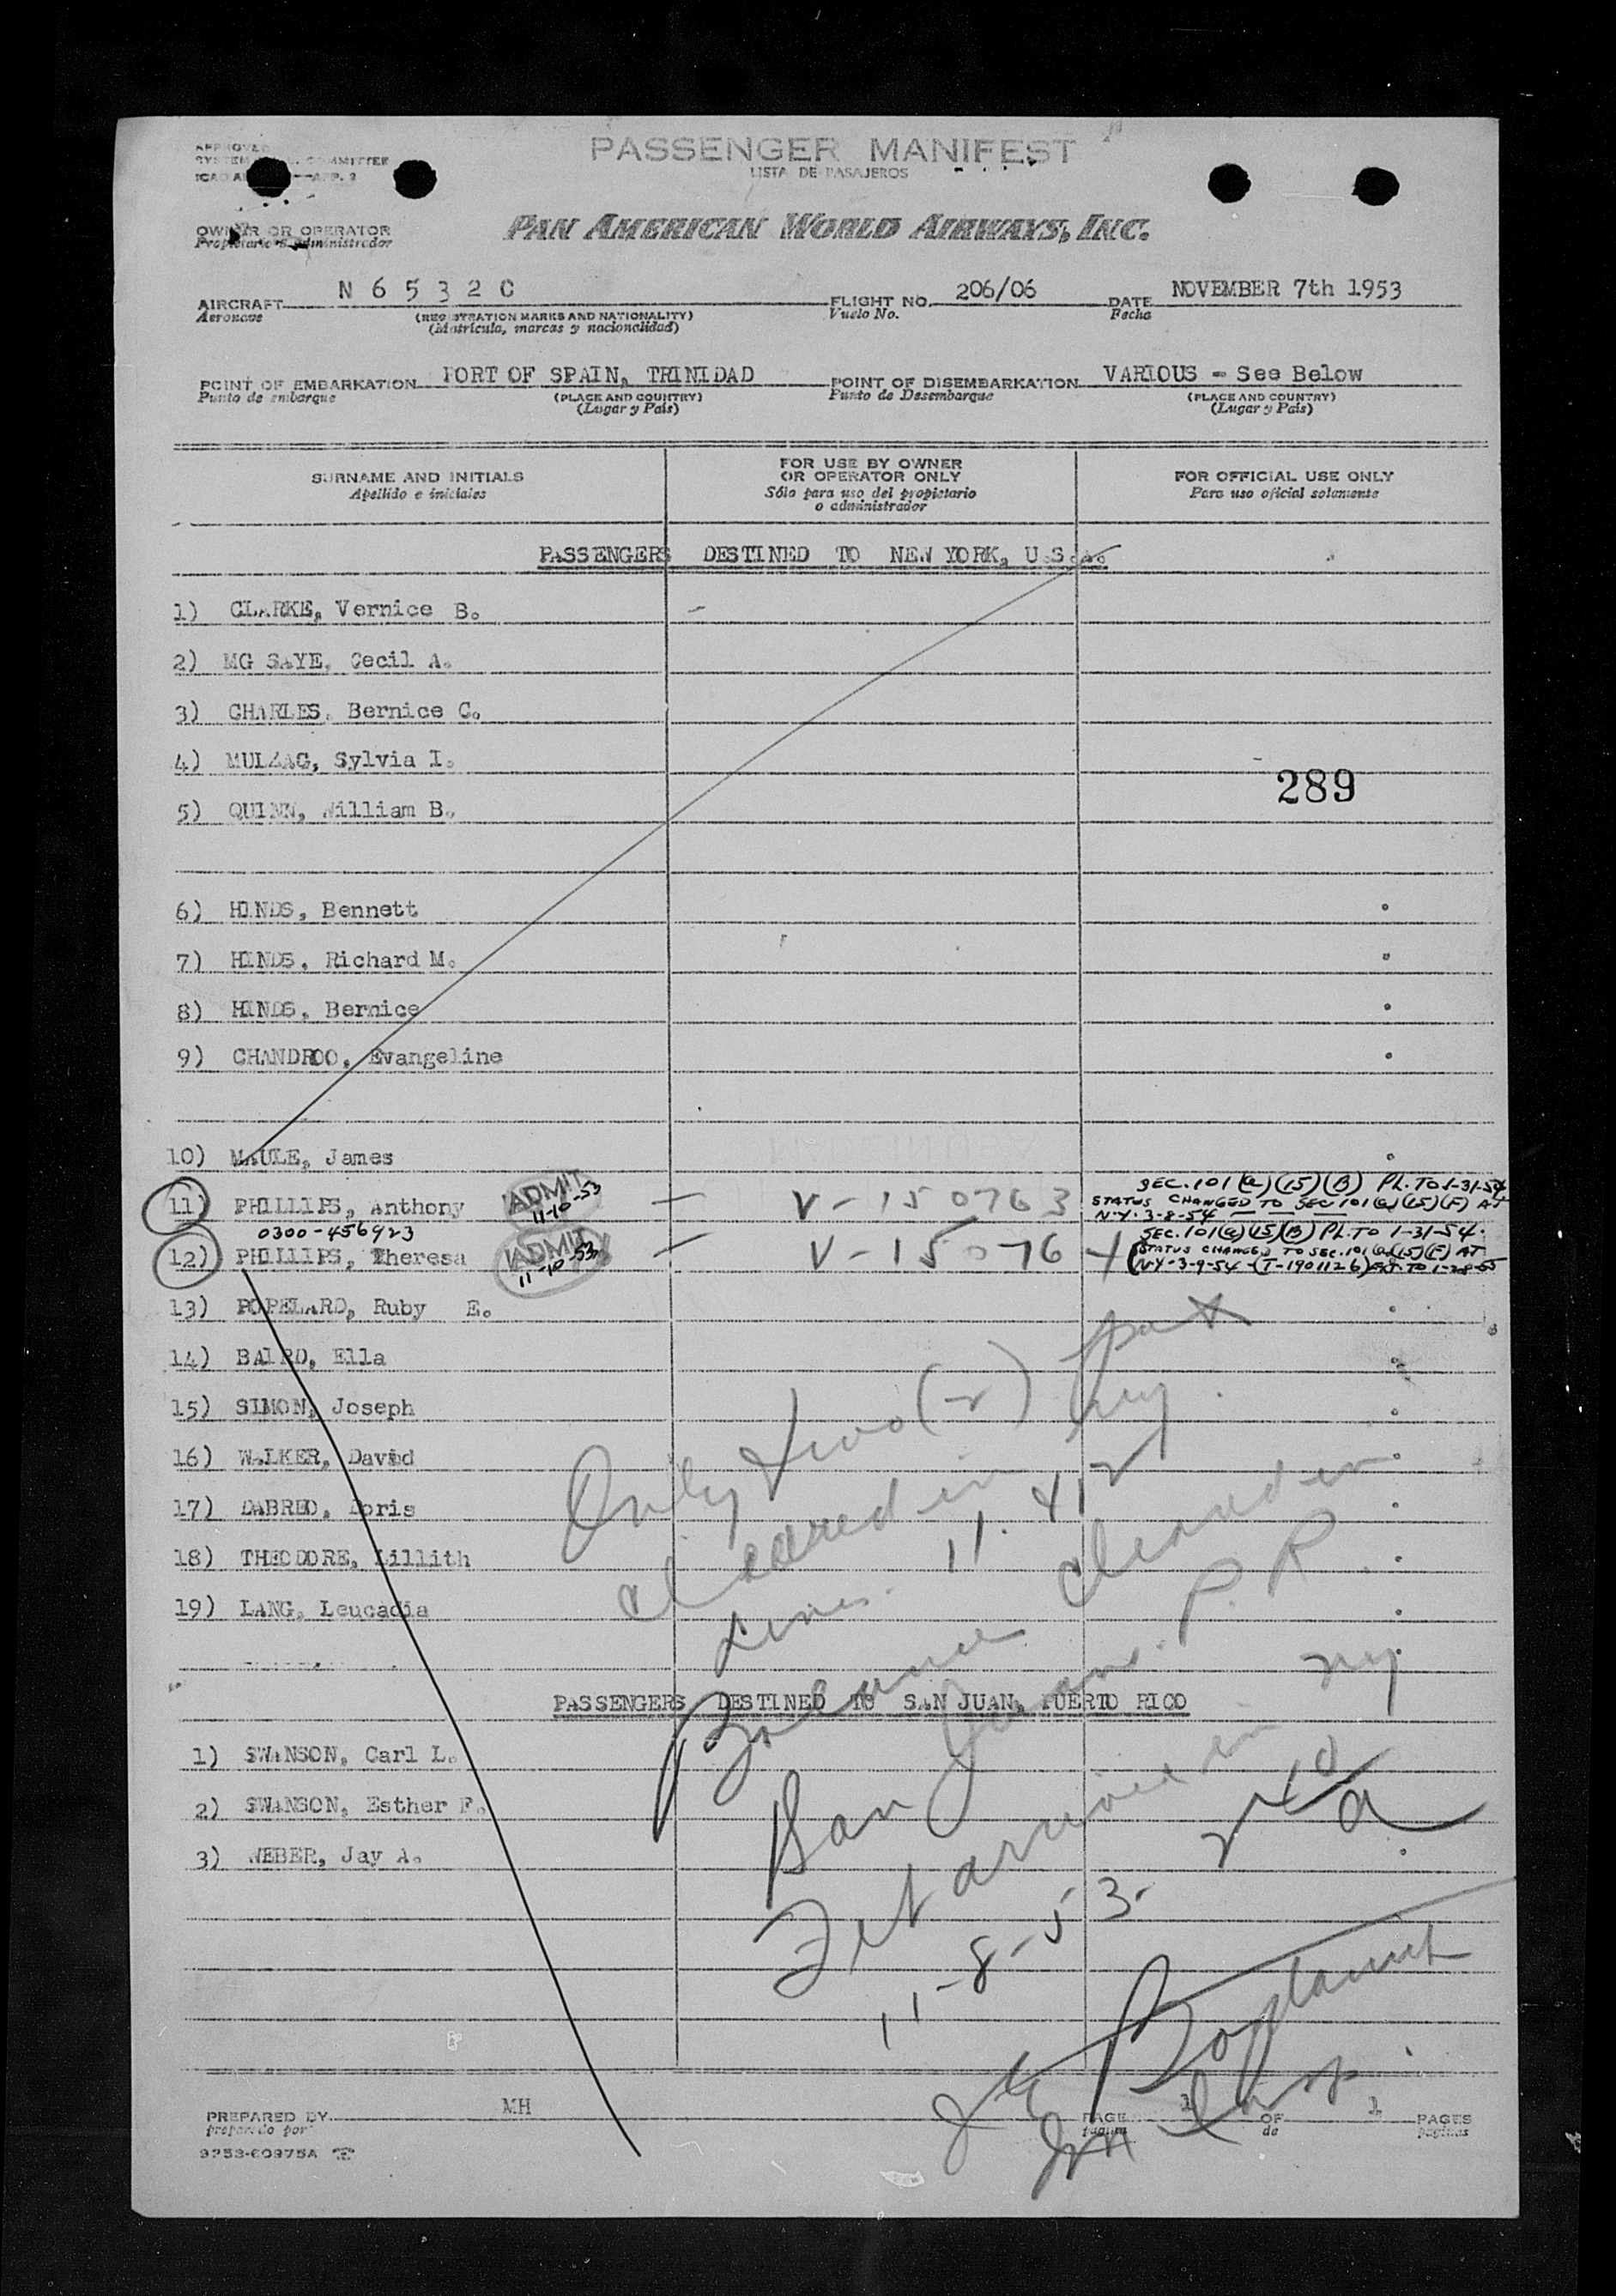 PASSENGER MANIFEST
LISTA DE PASAJEROS
APPROVED
SYSTEM COMMITTEE
ICAO APP. 2
OWNER OR OPERATOR
Propietario o administrador
PAN AMERICAN WORLD AIRWAYS, INC.
AIRCRAFT N 6 5 3 2 C FLIGHT NO. 206/06 DATE NOVEMBER 7th 1953
Aeronave (REGISTRATION MARKS AND NATIONALITY) Vuelo No. Fecha
(Matrícula, marcas y nacionalidad)
POINT OF EMBARKATION PORT OF SPAIN, TRINIDAD POINT OF DISEMBARKATION VARIOUS - See Below
Punto de embarque (PLACE AND COUNTRY) Punto de Desembarque (PLACE AND COUNTRY)
(Lugar y País) (Lugar y País)
SURNAME AND INITIALS FOR USE BY OWNER OR OPERATOR ONLY FOR OFFICIAL USE ONLY
Apellido e iniciales Sólo para uso del propietario o administrador Para uso oficial solamente
PASSENGERS DESTINED TO NEW YORK, U.S.A.
1) CLARKE, Vernice B.
2) MG SAYE, Cecil A.
3) CHARLES, Bernice C.
4) MULZAC, Sylvia I.
289
5) QUINN, William B.
6) HINDS, Bennett
7) HINDS, Richard M.
8) HINDS, Bernice
9) CHANDROO, Evangeline
10) MAULE, James
SEC. 101 (a) (15) (B) PL. TO 1-31-54
11) PHILLIPS, Anthony ADMIT 11-10-53 - V-150763 STATUS CHANGED TO SEC 101 (a) (15) (F) AT
N.Y. 3-8-54
0300-456923 SEC. 101 (a) (15) (B) PL. TO 1-31-54.
12) PHILLIPS, Theresa ADMIT 11-10-53 - V-15076 4 (STATUS CHANGED TO SEC. 101 (a) (15) (F) AT
N.Y. 3-9-54 (T-1901126) EXT. TO 1-28-55
13) POPELARD, Ruby E.
14) BAIRD, Ella
15) SIMON, Joseph
16) WALKER, David
17) DABREO, Doris
18) THEODORE, Lillith
19) LANG, Leucadia
Only two (2)
cleared in
Balance cleared in
San Juan. P.R.
arrived in NY
11-8-53.
PASSENGERS DESTINED TO SAN JUAN, PUERTO RICO
1) SWANSON, Carl L.
2) SWANSON, Esther F.
3) WEBER, Jay A.
PREPARED BY MH PAGE 1 OF 1 PAGES
preparado por página de páginas
9253-60975A